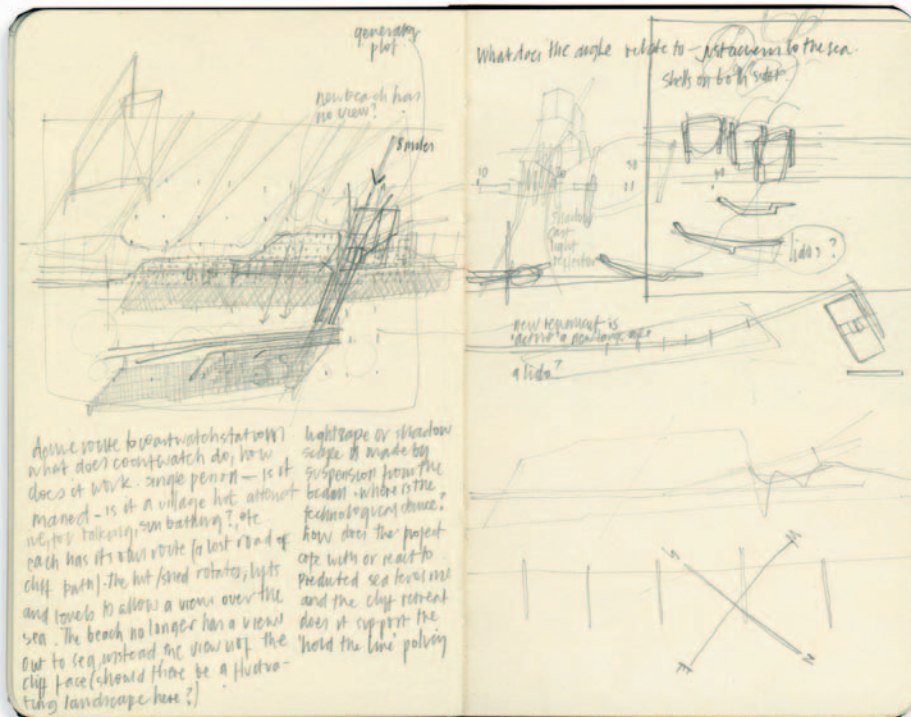 generator
plot
new beach has
no view?
8 miles
denne route to coastwatch station
what does coastwatch do, how
does it work. single person – is it
manned – is it a village hut
for talking, sun bathing?, etc
each has its own route (a lost road of
cliff path). The hut/shed rotates, lifts
and levels to allow a view over the
sea. The beach no longer has a view
out to sea, instead the view is of the
cliff face (should there be a frustra-
ting landscape here?)
lightscape or shadow
scape is made by
suspension from the
beam. where is the
technological dance?
how does the project
cope with or react to
predicted sea level rise
and the cliff retreat
does it support the
'hold the line' policy
What does the angle relate to – just access to the sea.
shells on both sides.
10
50
shadow
cast
light
reflector
lidos?
new
is
a new
a lido?
N
E